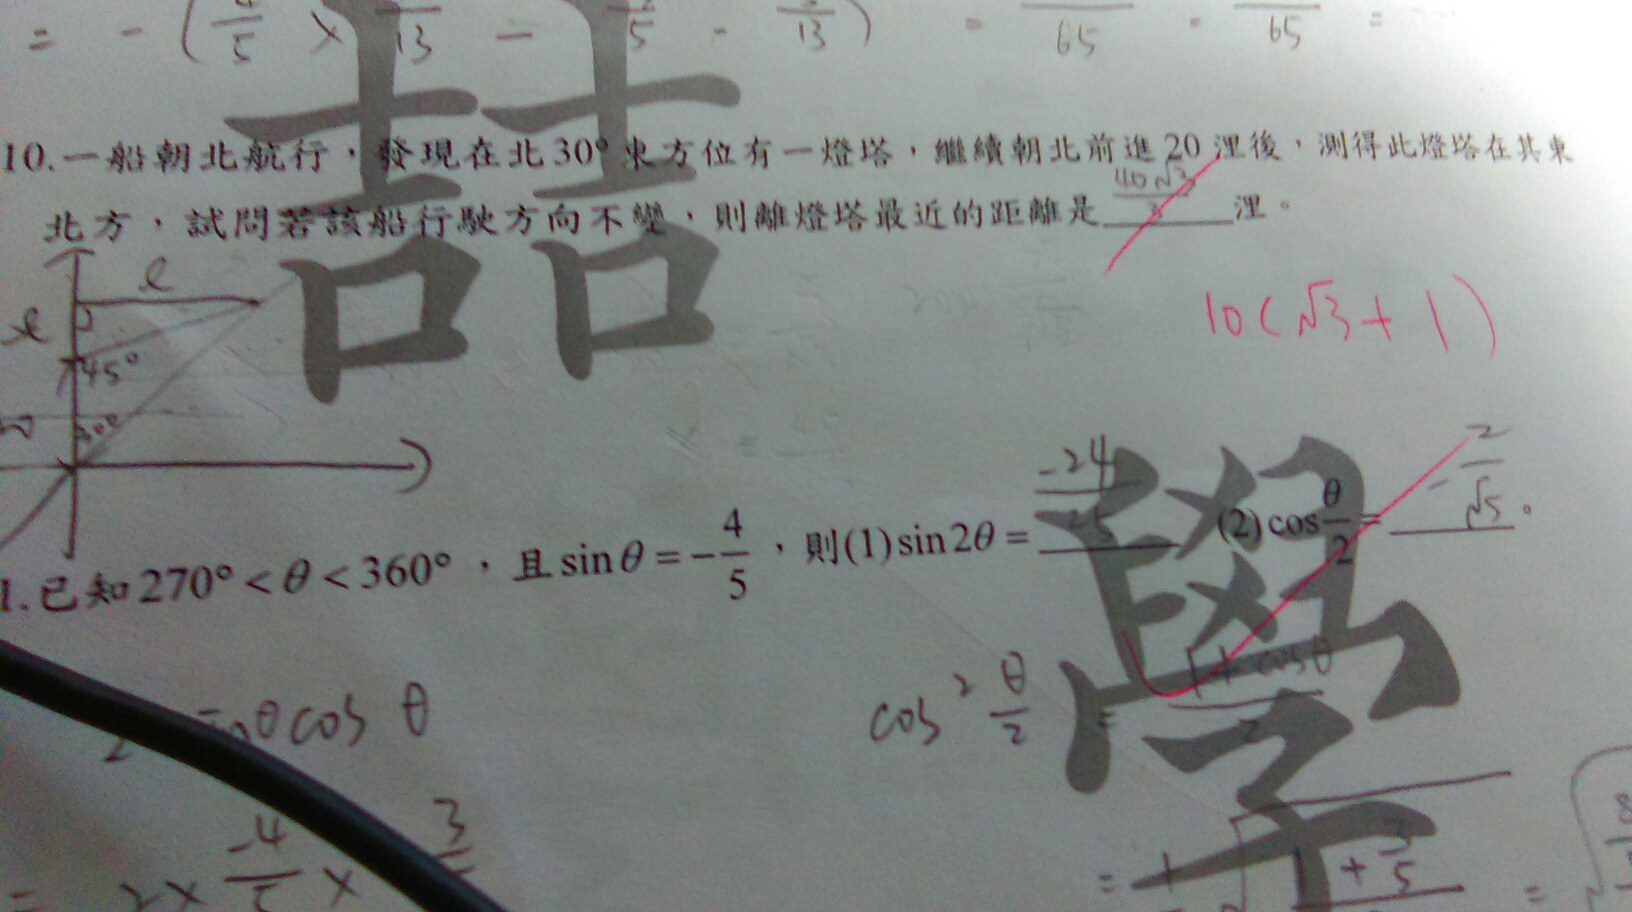 = - ( 4/5 × /13 - /5 - /13 ) = /65 - /65 =
10. 一船朝北航行，發現在北30°東方位有一燈塔，繼續朝北前進20浬後，測得此燈塔在其東
北方，試問若該船行駛方向不變，則離燈塔最近的距離是 40√3/3 浬。
10(√3+1)
l
l
45°
30°
1.已知270°<θ<360°，且sinθ=-4/5，則(1)sin2θ= -24/25 (2)cosθ/2= -2/√5。
2 sinθcosθ
cos²θ/2 = 1+cosθ/2
= 2× -4/5 × 3/
= ±√ 1+3/5
=
喆喆
學